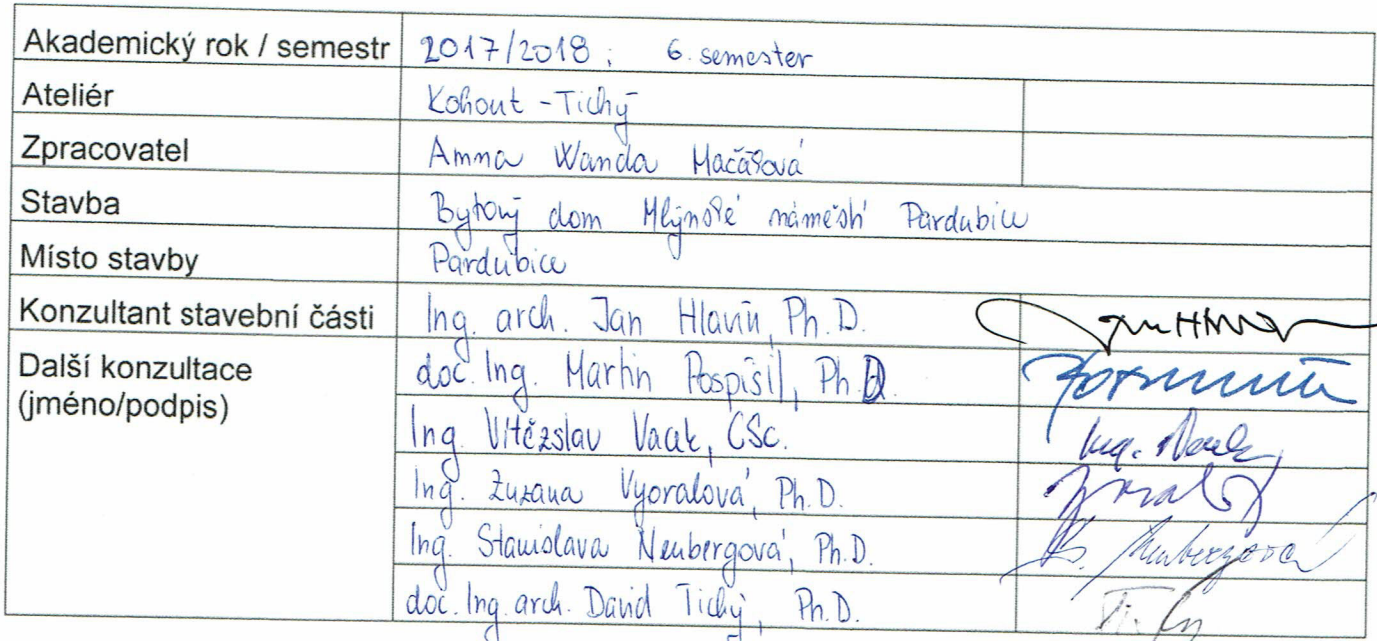 Akademický rok / semestr 2017/2018; 6. semester
Ateliér Kohout - Tichý
Zpracovatel Anna Wanda Macášová
Stavba Bytový dom Mlýnské náměstí Pardubice
Místo stavby Pardubice
Konzultant stavební části Ing. arch. Jan Hlavín, Ph.D.
Další konzultace doc. Ing. Martin Pospíšil, Ph.D.
(jméno/podpis)
Ing. Vítězslav Vacek, CSc. Ing. Vacek
Ing. Zuzana Vyoralová, Ph.D.
Ing. Stanislava Neubergová, Ph.D. Neubergová
doc. Ing. arch. David Tichý, Ph.D.